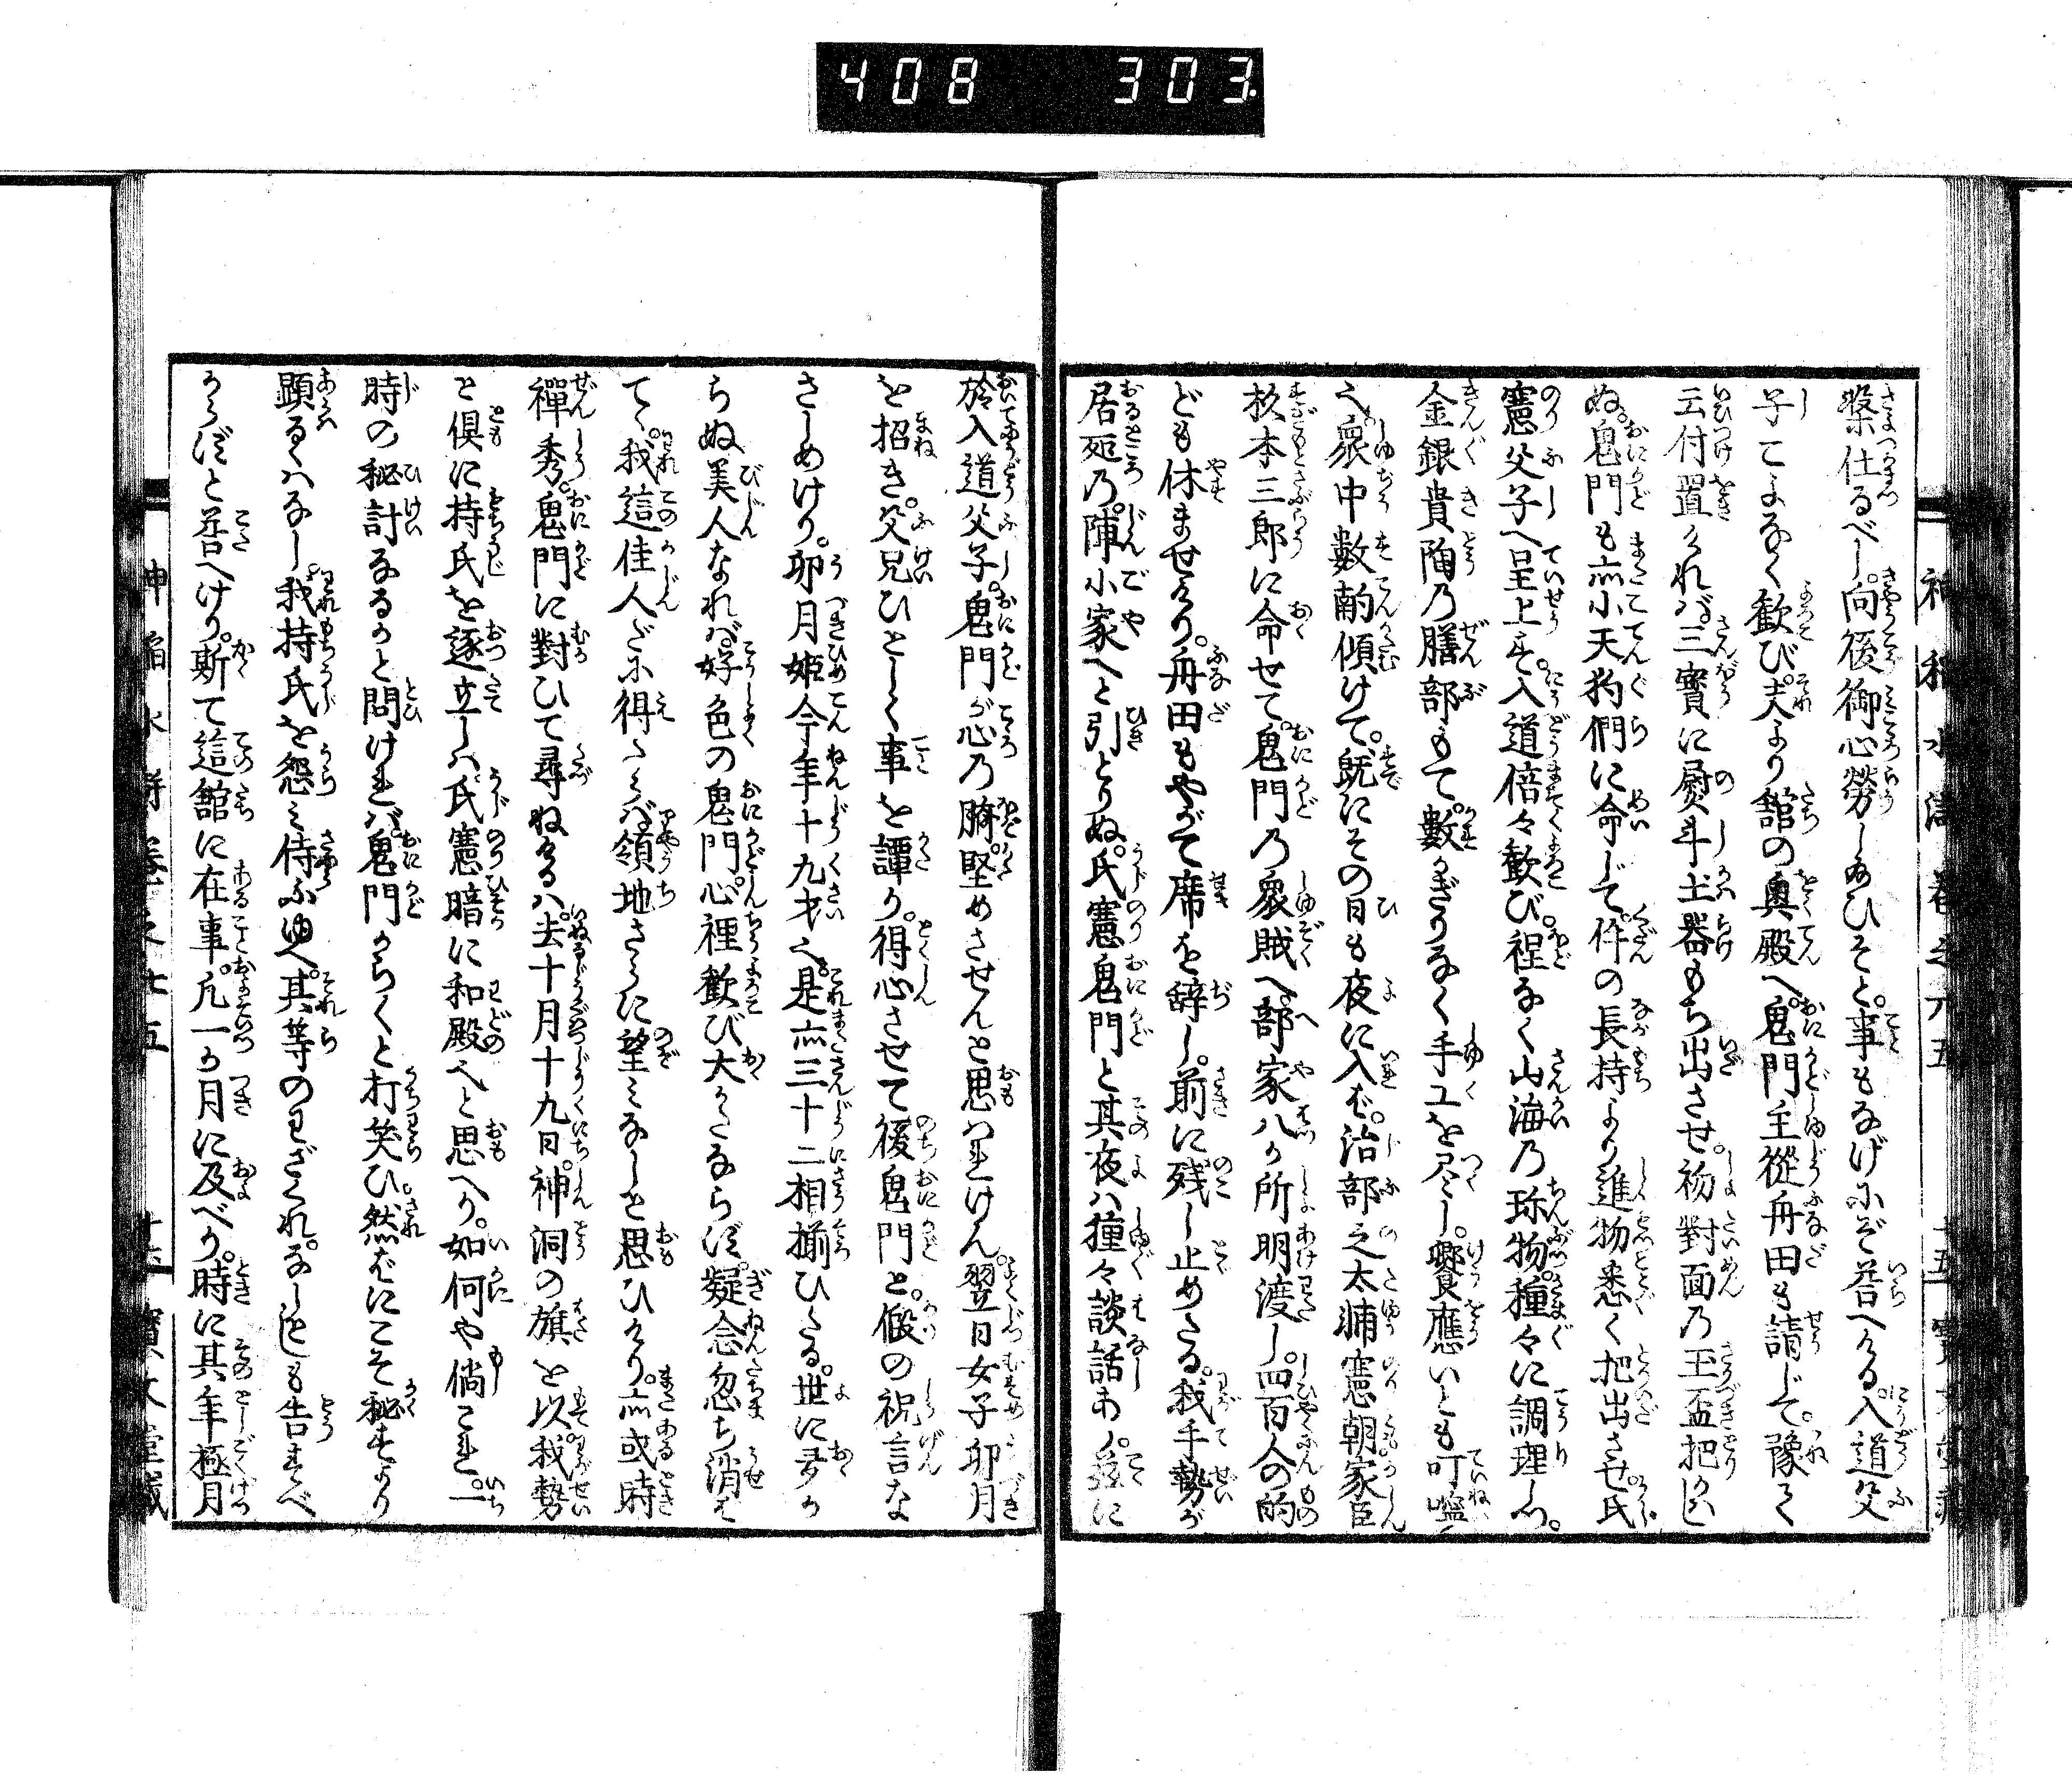 408 303
察仕るべし。向後御心勞し給ひそと。事もなげにぞ答へける。入道父
子こよなく歓び。夫より舘の奥殿へ。鬼門主従舟田も請じて。豫て
云付置きければ。三寳に熨斗土器もち出させ。初對面の玉盃把かはし
ぬ。鬼門も亦小天狗們に命じて。件の長持より進物悉く把出させ。氏
憲父子へ呈上す。入道倍々歓び。程なく山海の珎物。種々に調理しつ。
金銀貴陶の膳部もて。數かぎりなく手工を尽し。饗應いとも叮嚀
衆中數献傾けて。既にその日も夜に入ば。治部之太輔憲朝家臣
杉本三郎に命せて。鬼門の衆賊へ部家八ヶ所明渡し。四百人の的
ども休ませけり。舟田もやがて席を辞し。前に残し止めたる。我手勢が
居処の。陣小家へと引とりぬ。氏憲鬼門と其夜ハ種々談話あり。茲に
於入道父子。鬼門が心の臍堅めさせんと思はれけん。翌日女子卯月
を招き。父兄ひとしく事を譚り。得心させて後鬼門と。假の祝言な
さしめけり。卯月姫今年十九才也。是亦三十二相揃ひたる。世に多か
らぬ美人なれば。好色の鬼門。心裡歓び大かたならず。疑念忽ち消う
て。我這佳人だに得たらば領地さらに望みなしと思ひけり。亦或時
禪秀。鬼門に對ひて尋ねけるハ。去十月十九日。神洞の旗を以。我勢
と倶に持氏を逐立しハ。氏憲暗に和殿也と思へり。如何や倘これ。一
時の秘計なるかと問けれバ。鬼門からからと打笑ひ。然ばにこそ秘すより
顕るゝハなし。我持氏を怨み侍ふゆへ。其等のわざくれ。なしゝも告すべ
からずと答へけり。斯て這舘に在事。凡一ヶ月に及べり。時に其年極月